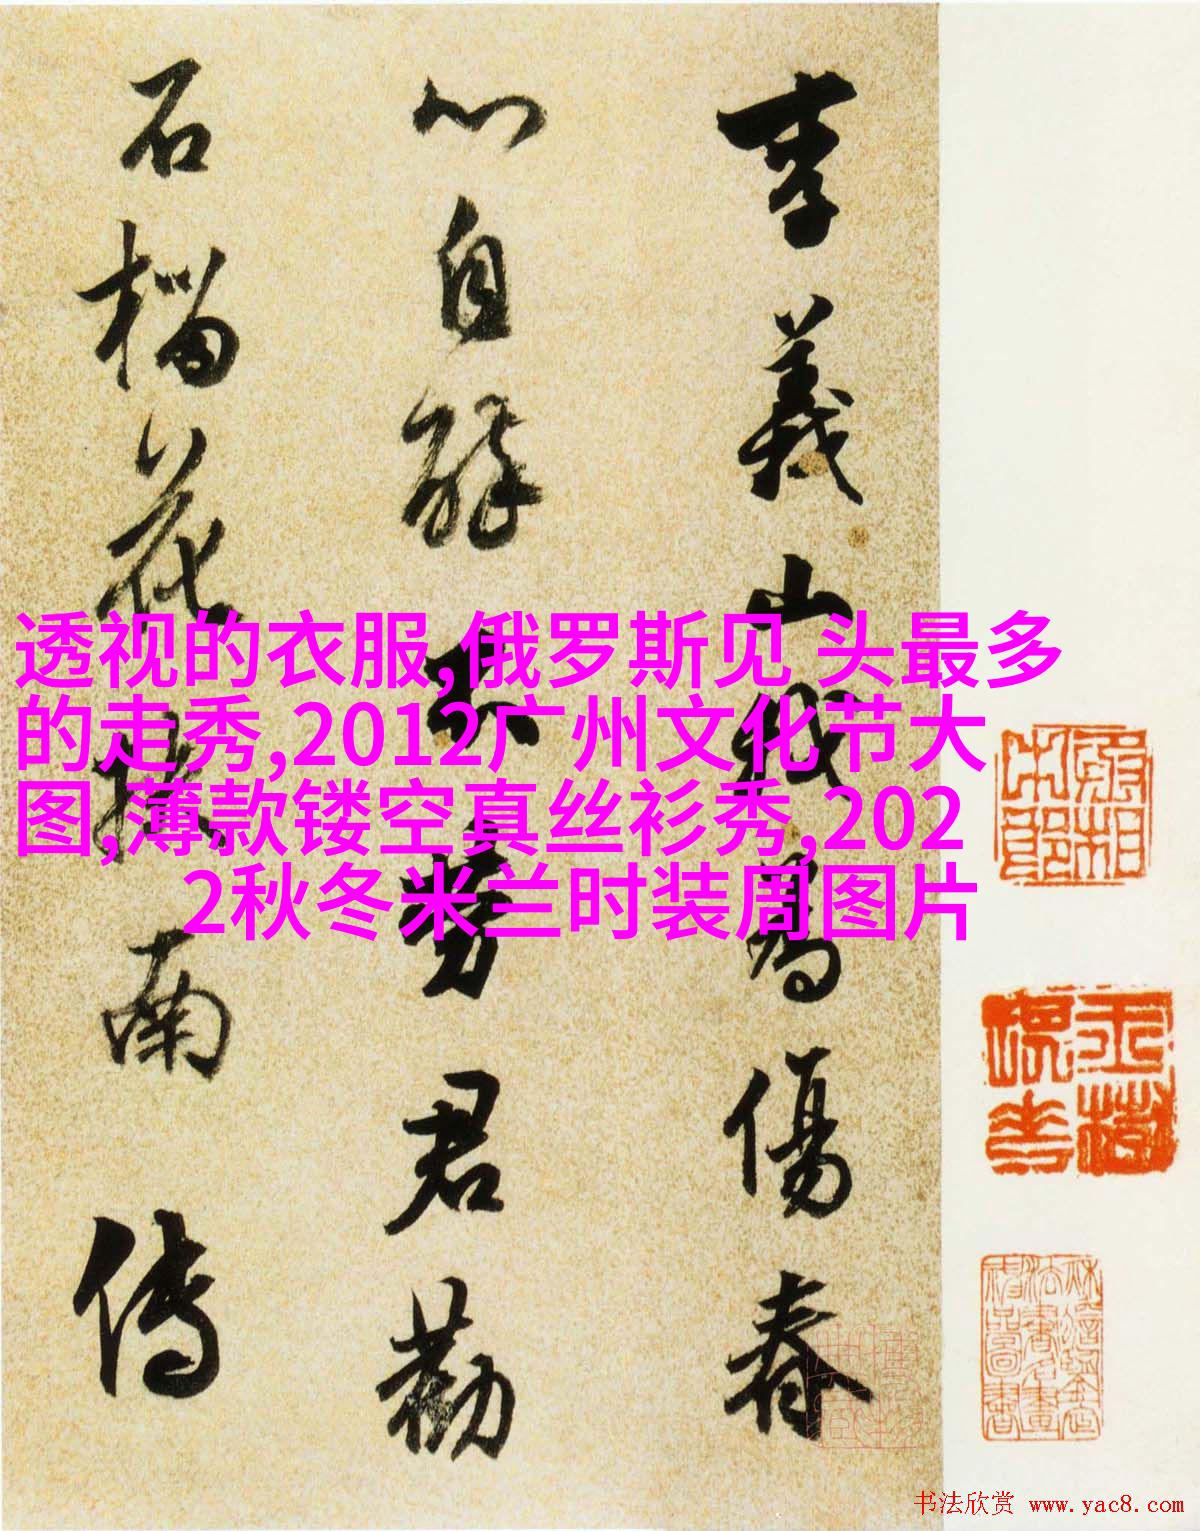 李義山我為傷春
心自醉不勞君勸
石榴花 南傳
透视的衣服,俄罗斯见 头最多
的走秀,2012广州文化节大
图,薄款镂空真丝衫秀,202
2秋冬米兰时装周图片
书法欣赏 www.yac8.com